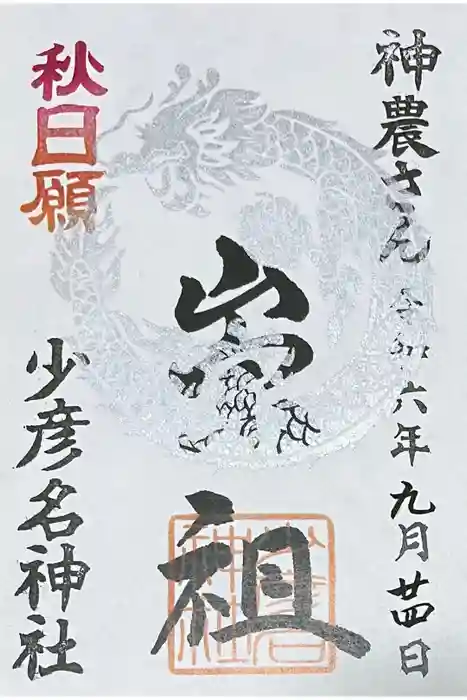 神農さん 令和六年九月廿四日
崇祖
秋日願
少彦名神社